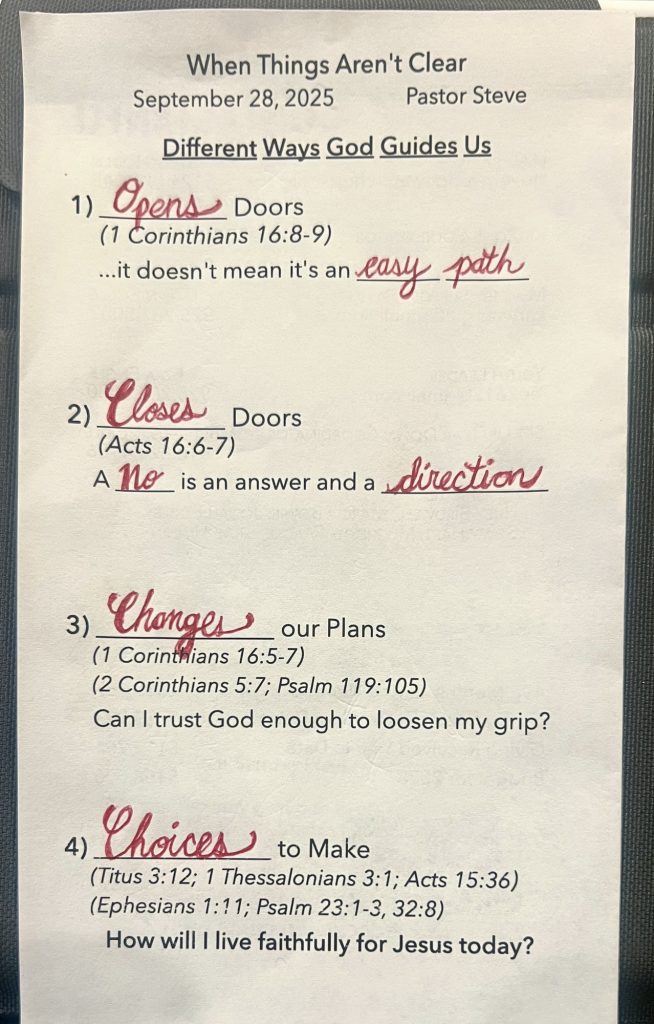 When Things Aren't Clear
September 28, 2025 Pastor Steve
Different Ways God Guides Us
1) Opens Doors
(1 Corinthians 16:8-9)
...it doesn't mean it's an easy path
2) Closes Doors
(Acts 16:6-7)
A No is an answer and a direction
3) Changes our Plans
(1 Corinthians 16:5-7)
(2 Corinthians 5:7; Psalm 119:105)
Can I trust God enough to loosen my grip?
4) Choices to Make
(Titus 3:12; 1 Thessalonians 3:1; Acts 15:36)
(Ephesians 1:11; Psalm 23:1-3, 32:8)
How will I live faithfully for Jesus today?